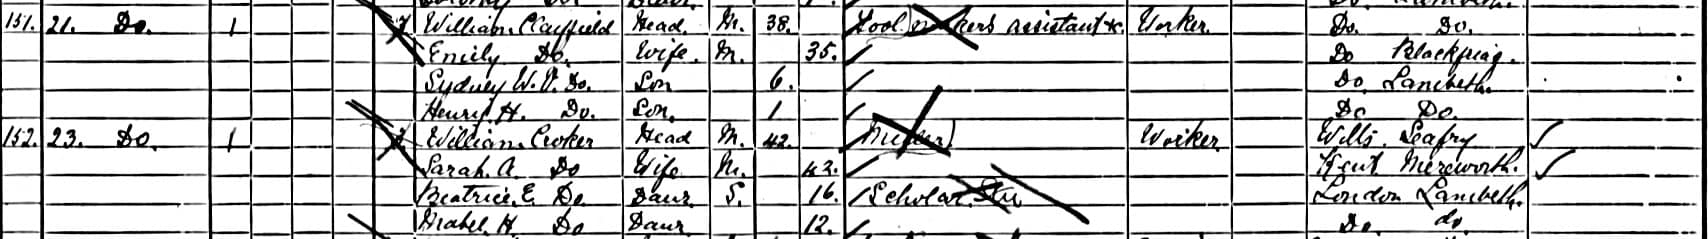 151. 21. Do. 1 William Clayfield Head M. 38. Tool makers assistant &c. Worker Do. Do.
Emily Do. Wife. M. 35. Do Blackfriars.
Sydney W. Do. Son 6. Do. Lambeth.
Henry H. Do. Son. 1 Do Do.
152. 23. Do. 1 William Croker Head M. 42. Worker Wilts.
Sarah. A. Do Wife M. 42. Kent Mereworth.
Beatrice. E. Do Daur S. 16. Scholar London Lambeth.
Mabel. H. Do Daur. 12. Do. do.